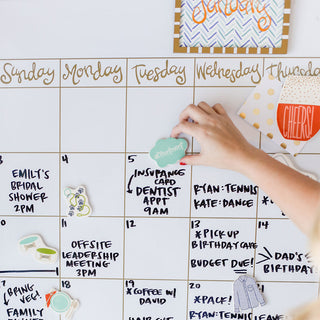 January
Sunday Monday Tuesday Wednesday Thursday
CHEERS!
3
EMILY'S
BRIDAL
SHOWER
2PM
4
5
INSURANCE
CARD
DENTIST
APPT
9AM
RYAN: TENNIS
KATE: DANCE
11
OFFSITE
LEADERSHIP
MEETING
3PM
12
13
*PICK UP
BIRTHDAY CAKE
BUDGET DUE!
14
DAD'S
BIRTHDAY
17
BRING
VEG!
FAMILY
18
19
*COFFEE W/
DAVID
HAIR CUT
20
*PACK!
RYAN: TENNIS
21
LEAVE